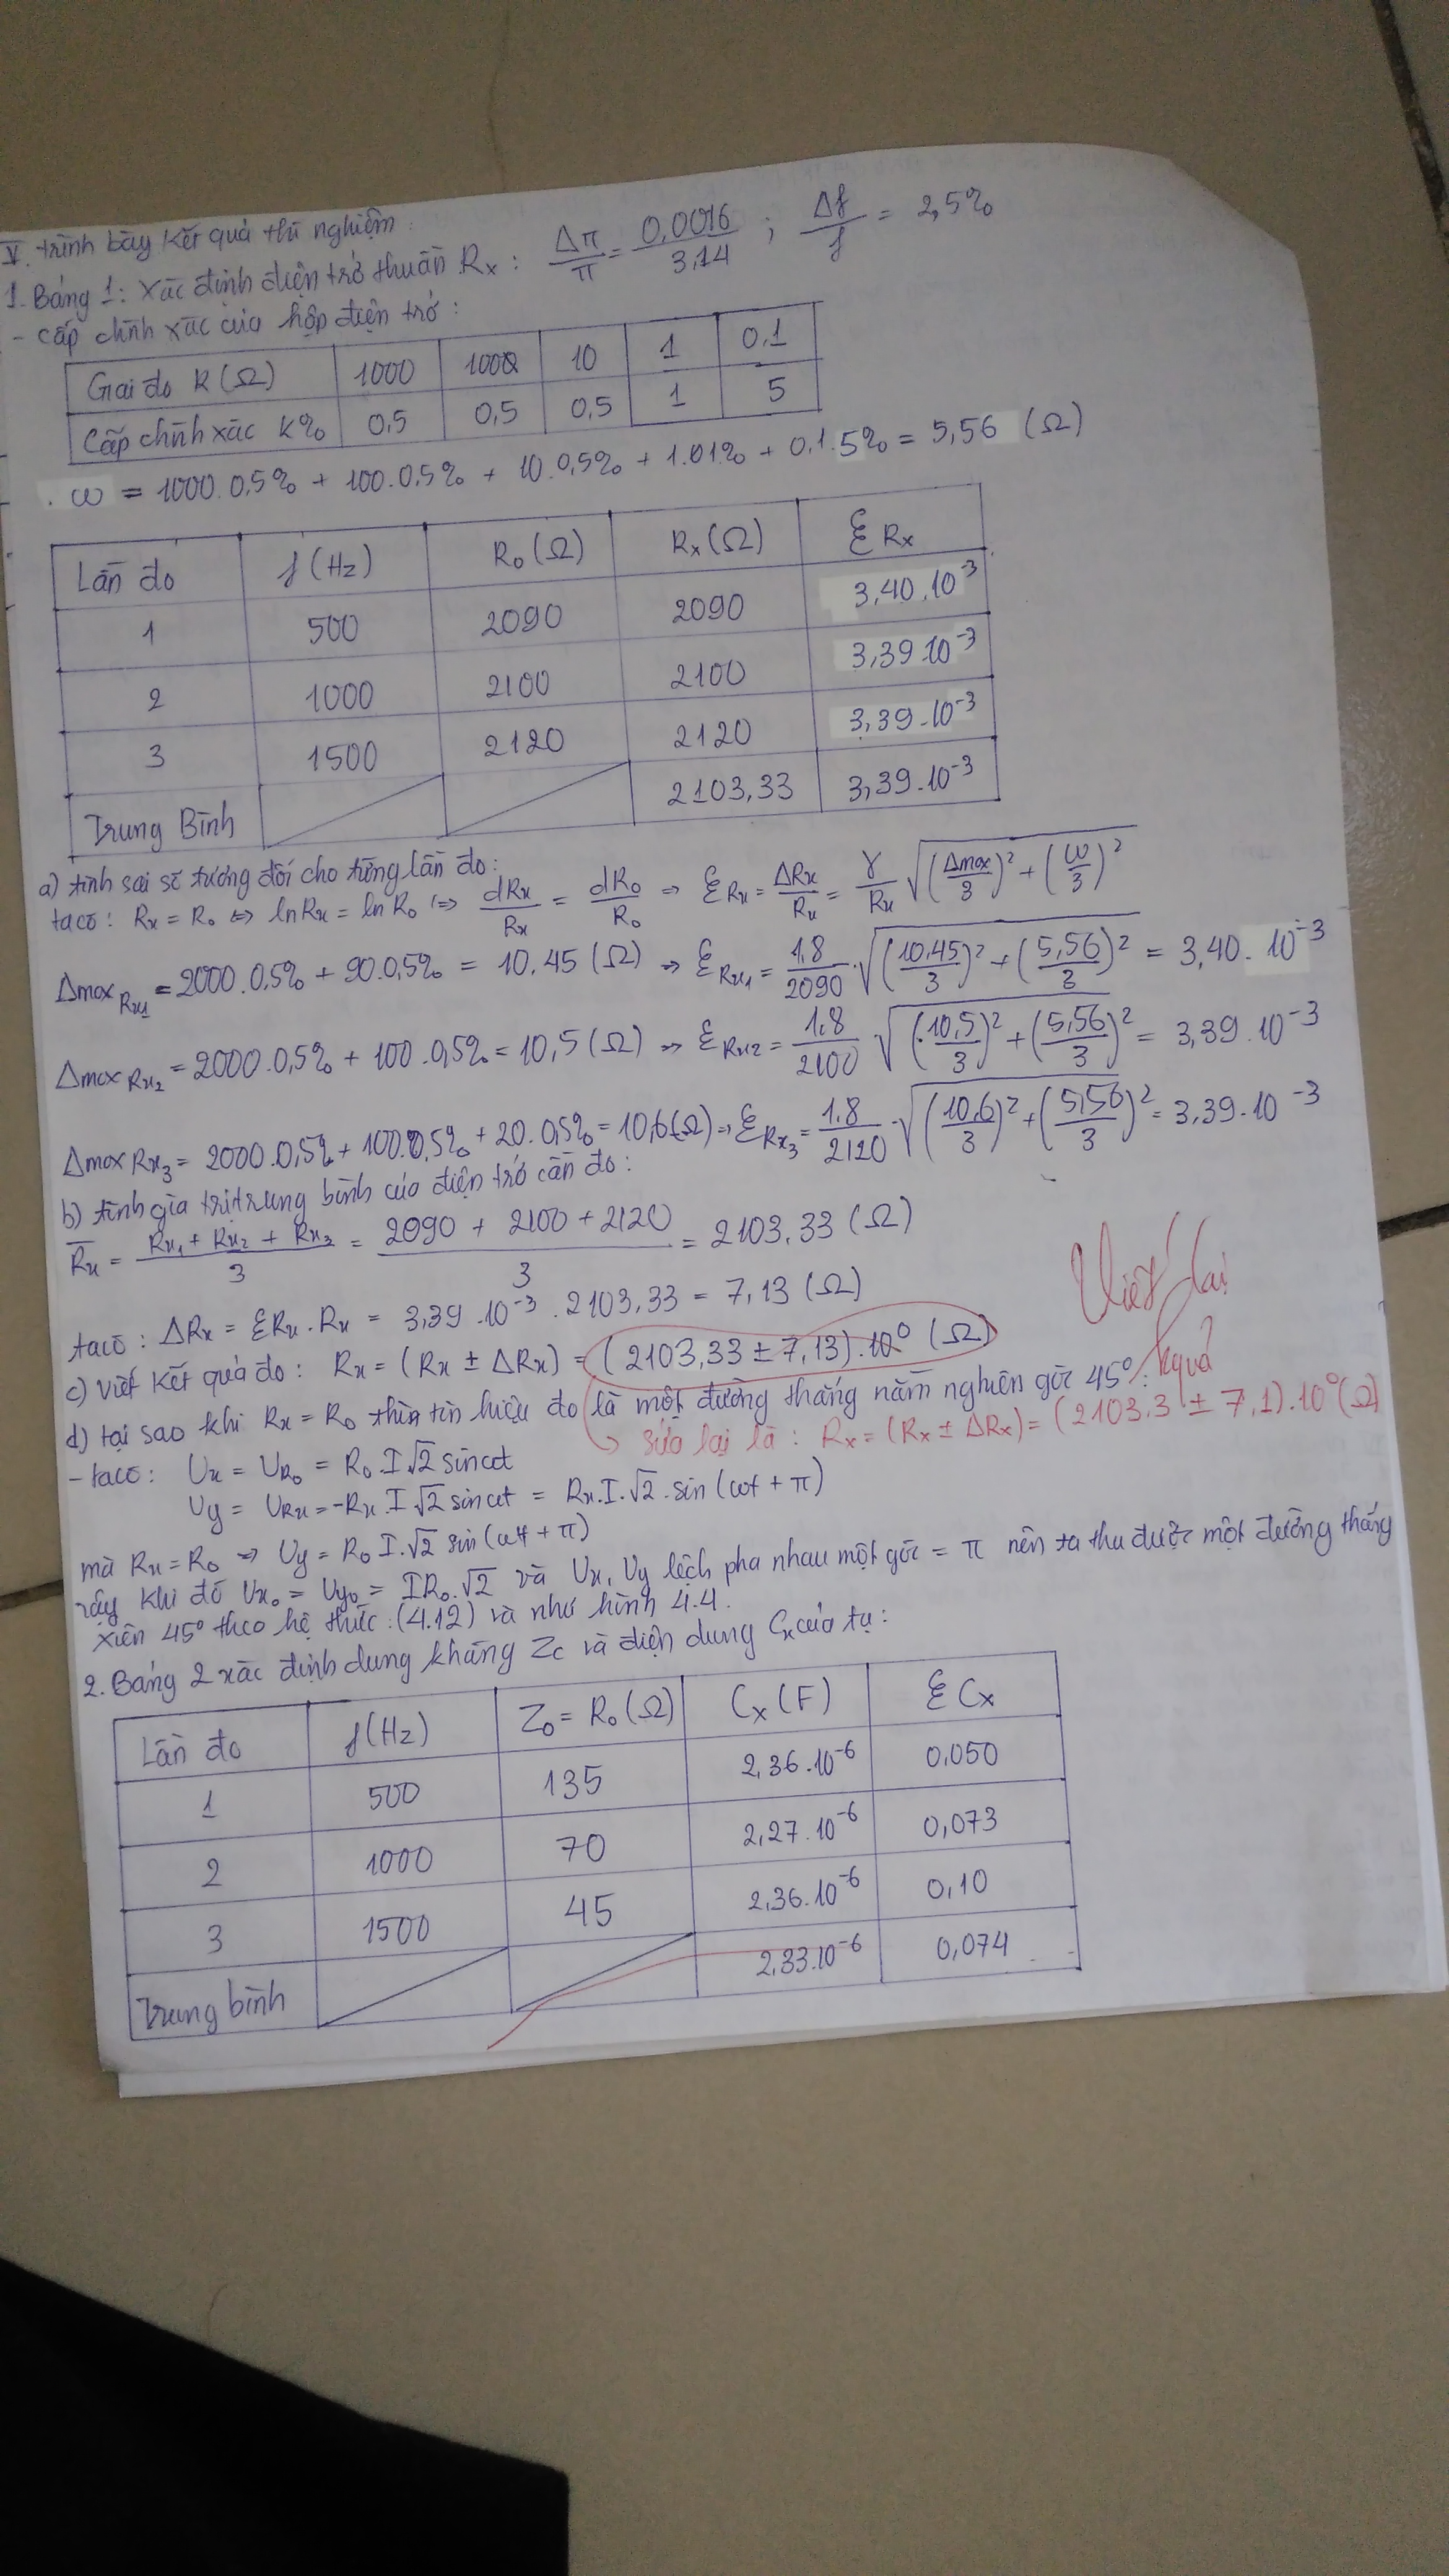 V. Trình bày kết quả thí nghiệm.
1. Bảng 1: Xác định điện trở thuần Rx: Δπ/π = 0,0016/3,14 ; Δf/f = 2,5%
- Cấp chính xác của hộp điện trở:
Giai đo R (Ω) 1000 100 10 1 0.1
Cấp chính xác K% 0,5 0,5 0,5 1 5
. ω = 1000.0,5% + 100.0,5% + 10.0,5% + 1.01% + 0,1.5% = 5,56 (Ω)
Lần đo f (Hz) R₀ (Ω) Rx (Ω) ℰ Rx
1 500 2090 2090 3,40.10⁻³
2 1000 2100 2100 3,39.10⁻³
3 1500 2120 2120 3,39.10⁻³
Trung Bình 2103,33 3,39.10⁻³
a) tính sai số tương đối cho từng lần đo:
ta có: Rx = R₀ ⇔ lnRx = lnR₀ ⇔ dRx/Rx = dR₀/R₀ ⇒ ℰRx = ΔRx/Rx = γ/Rx √((Δmax/3)² + (ω/3)²)
ΔmaxRx1 = 2000.0,5% + 90.0,5% = 10,45 (Ω) ⇒ ℰRx1 = 1,8/2090 . √((10,45/3)² + (5,56/3)²) = 3,40.10⁻³
ΔmaxRx2 = 2000.0,5% + 100.0,5% = 10,5 (Ω) ⇒ ℰRx2 = 1.8/2100 √((10,5/3)² + (5,56/3)²) = 3,39.10⁻³
ΔmaxRx3 = 2000.0,5% + 100.0,5% + 20.0,5% = 10,6 (Ω) ⇒ ℰRx3 = 1.8/2120 . √((10,6/3)² + (5,56/3)²) = 3,39.10⁻³
b) tính giá trị trung bình của điện trở cần đo:
R̄x = (Rx₁ + Rx₂ + Rx₃)/3 = (2090 + 2100 + 2120)/3 = 2103,33 (Ω)
ta có: ΔRx = ℰRx.Rx = 3,39.10⁻³.2103,33 = 7,13 (Ω)
Viết lại kquả?
c) Viết kết quả đo: Rx = (Rx ± ΔRx) = (2103,33 ± 7,13).10⁰ (Ω)
↳ sửa lại là: Rx = (Rx ± ΔRx) = (2103,3 ± 7,1).10⁰ (Ω)
d) tại sao khi Rx = R₀ thì tín hiệu đo là một đường thẳng nằm nghiên góc 45⁰.
- ta có: Ux = UR₀ = R₀.I√2 sinωt
Uy = URx = -Rx.I√2 sinωt = Rx.I.√2.sin(ωt + π)
mà Rx = R₀ ⇒ Uy = R₀I.√2 sin(ωt + π)
Vậy khi đó Ux₀ = Uy₀ = IR₀.√2 và Ux, Uy lệch pha nhau một góc = π nên ta thu được một đường thẳng
xiên 45⁰ theo hệ thức: (4.12) và như hình 4.4.
2. Bảng 2 xác định dung kháng Zc và điện dung Cx của tụ:
Lần đo f (Hz) Z₀ = R₀ (Ω) Cx (F) ℰ Cx
1 500 135 2,36.10⁻⁶ 0,050
2 1000 70 2,27.10⁻⁶ 0,073
3 1500 45 2,36.10⁻⁶ 0,10
Trung bình 2,33.10⁻⁶ 0,074